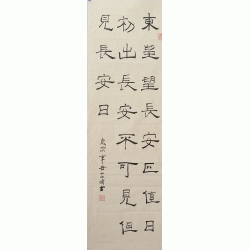 東望望長安正值日
初出長安不可見但
見長安日